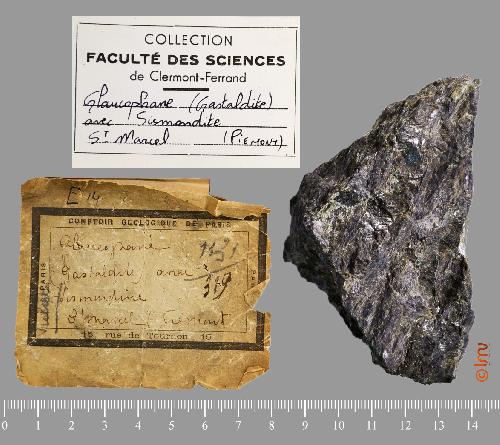 COLLECTION
FACULTÉ DES SCIENCES
de Clermont-Ferrand
Glaucophane (Gastaldite)
avec Sismondite
St Marcel (PIEMONT)
E 14
COMPTOIR GEOLOGIQUE DE PARIS
Glaucophane
Gastaldite avec
319
Sismondine
St Marcel Piemont
15 rue de Tournon 15
PARIS
PARIS
©lmv
0 1 2 3 4 5 6 7 8 9 10 11 12 13 14